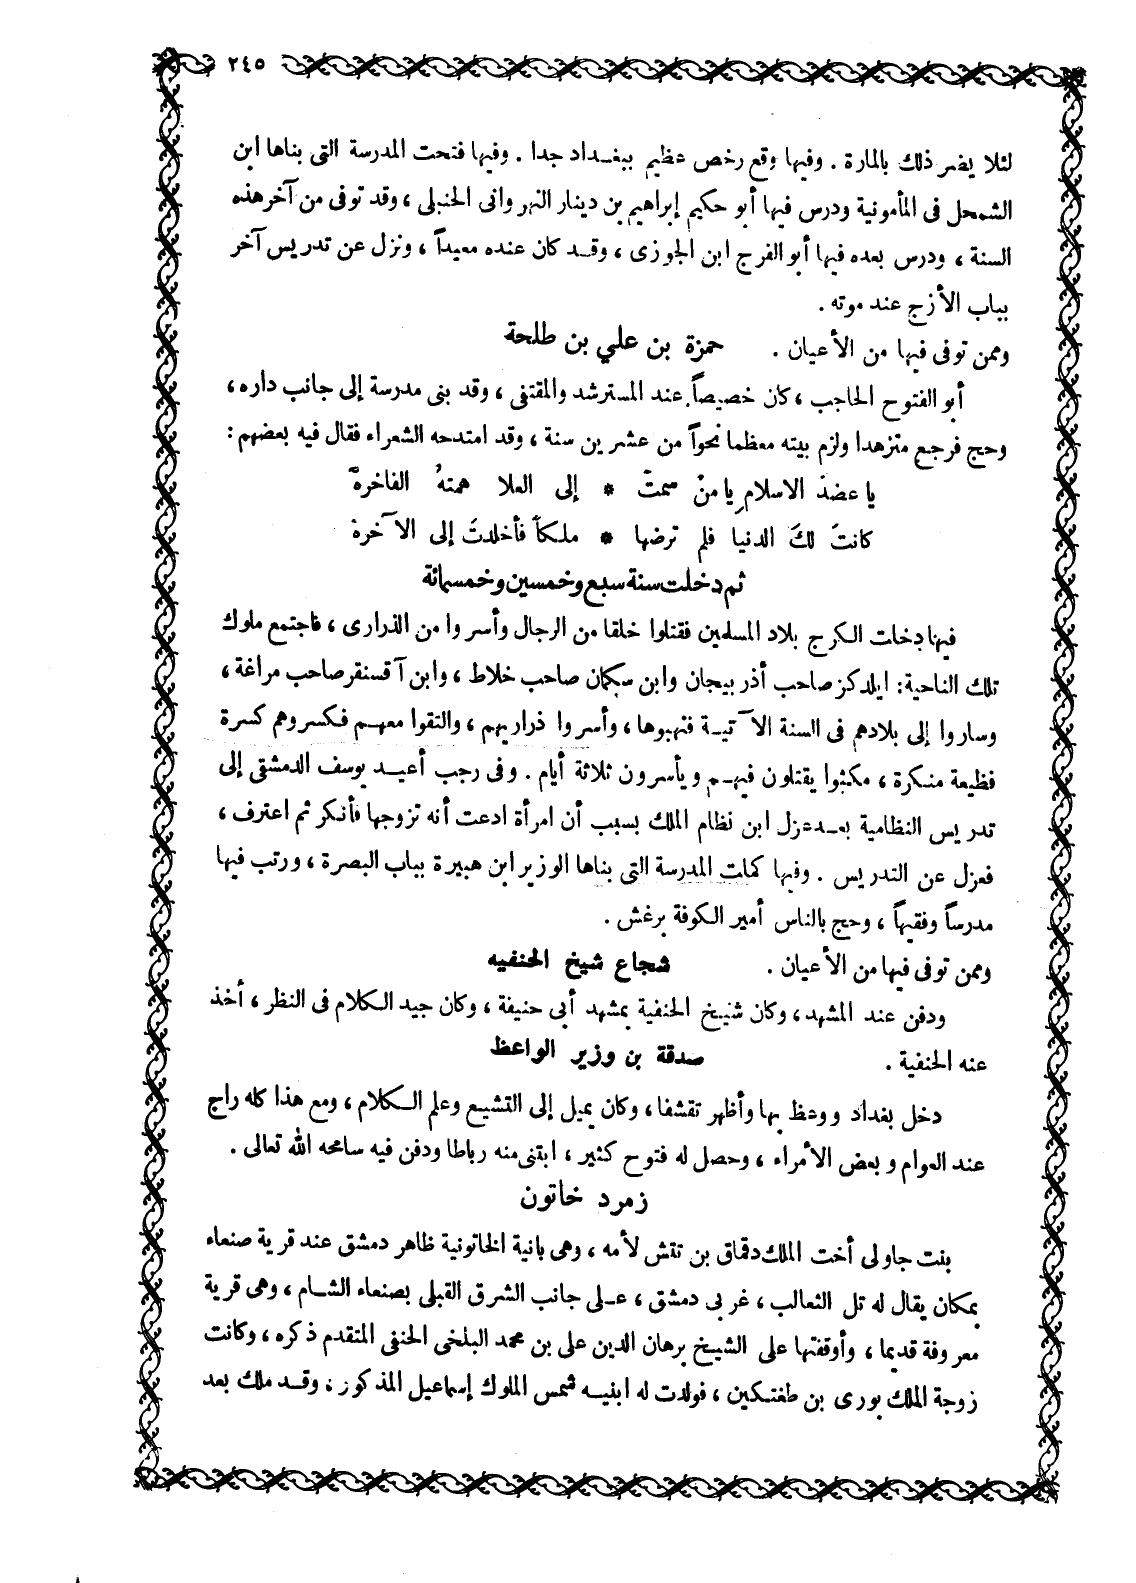 ٢٤٥
لئلا يضر ذلك بالمارة . وفيها وقع رخص عظيم ببغداد جدا . وفيها فتحت المدرسة التى بناها ابن
الشمحل فى المأمونية ودرس فيها أبو حكيم إبراهيم بن دينار النهروانى الحنبلى ، وقد توفى من آخر هذه
السنة ، ودرس بعده فيها أبو الفرج ابن الجوزى ، وقد كان عنده معيداً ، ونزل عن تدريس آخر
بباب الأزج عند موته .
وممن توفى فيها من الأعيان . حمزة بن علي بن طلحة
أبو الفتوح الحاجب ، كان خصيصاً عند المسترشد والمقتفى ، وقد بنى مدرسة إلى جانب داره ،
وحج فرجع متزهدا ولزم بيته معظما نحواً من عشرين سنة ، وقد امتدحه الشعراء فقال فيه بعضهم :
يا عضدَ الاسلامِ يا منْ سمتْ * إلى العلا همتهُ الفاخرةْ
كانتَ لكَ الدنيا فلم ترضها * ملكاً فأخلدتَ إلى الآخرة
ثم دخلت سنة سبع وخمسين وخمسمائة
فيها دخلت الكرج بلاد المسلمين فقتلوا خلقا من الرجال وأسروا من الذرارى ، فاجتمع ملوك
تلك الناحية : ايلدكز صاحب أذربيجان وابن سكمان صاحب خلاط ، وابن آقسنقر صاحب مراغة ،
وساروا إلى بلادهم فى السنة الآتية فنهبوها ، وأسروا ذراريهم ، والتقوا معهم فكسروهم كسرة
فظيعة منكرة ، مكثوا يقتلون فيهم ويأسرون ثلاثة أيام . وفى رجب أعيد يوسف الدمشقى إلى
تدريس النظامية بعد عزل ابن نظام الملك بسبب أن امرأة ادعت أنه تزوجها فأنكر ثم اعترف ،
فعزل عن التدريس . وفيها كملت المدرسة التى بناها الوزير ابن هبيرة بباب البصرة ، ورتب فيها
مدرساً وفقيهاً ، وحج بالناس أمير الكوفة برغش .
وممن توفى فيها من الأعيان . شجاع شيخ الحنفيه
ودفن عند المشهد ، وكان شيخ الحنفية بمشهد أبى حنيفة ، وكان جيد الكلام فى النظر ، أخذ
عنه الحنفية . صدقة بن وزير الواعظ
دخل بغداد ووعظ بها وأظهر تقشفا ، وكان يميل إلى التشيع وعلم الكلام ، ومع هذا كله راج
عند العوام وبعض الأمراء ، وحصل له فتوح كثير ، ابتنى منه رباطا ودفن فيه سامحه الله تعالى .
زمرد خاتون
بنت جاولى أخت الملك دقماق بن تتش لأمه ، وهى بانية الخاتونية ظاهر دمشق عند قرية صنعاء
بمكان يقال له تل الثعالب ، غربى دمشق ، على جانب الشرق القبلى بصنعاء الشام ، وهى قرية
معروفة قديما ، وأوقفتها على الشيخ برهان الدين على بن محمد البلخى الحنفى المتقدم ذكره ، وكانت
زوجة الملك بورى بن طغتكين ، فولدت له ابنيه شمس الملوك إسماعيل المذكور ، وقد ملك بعد